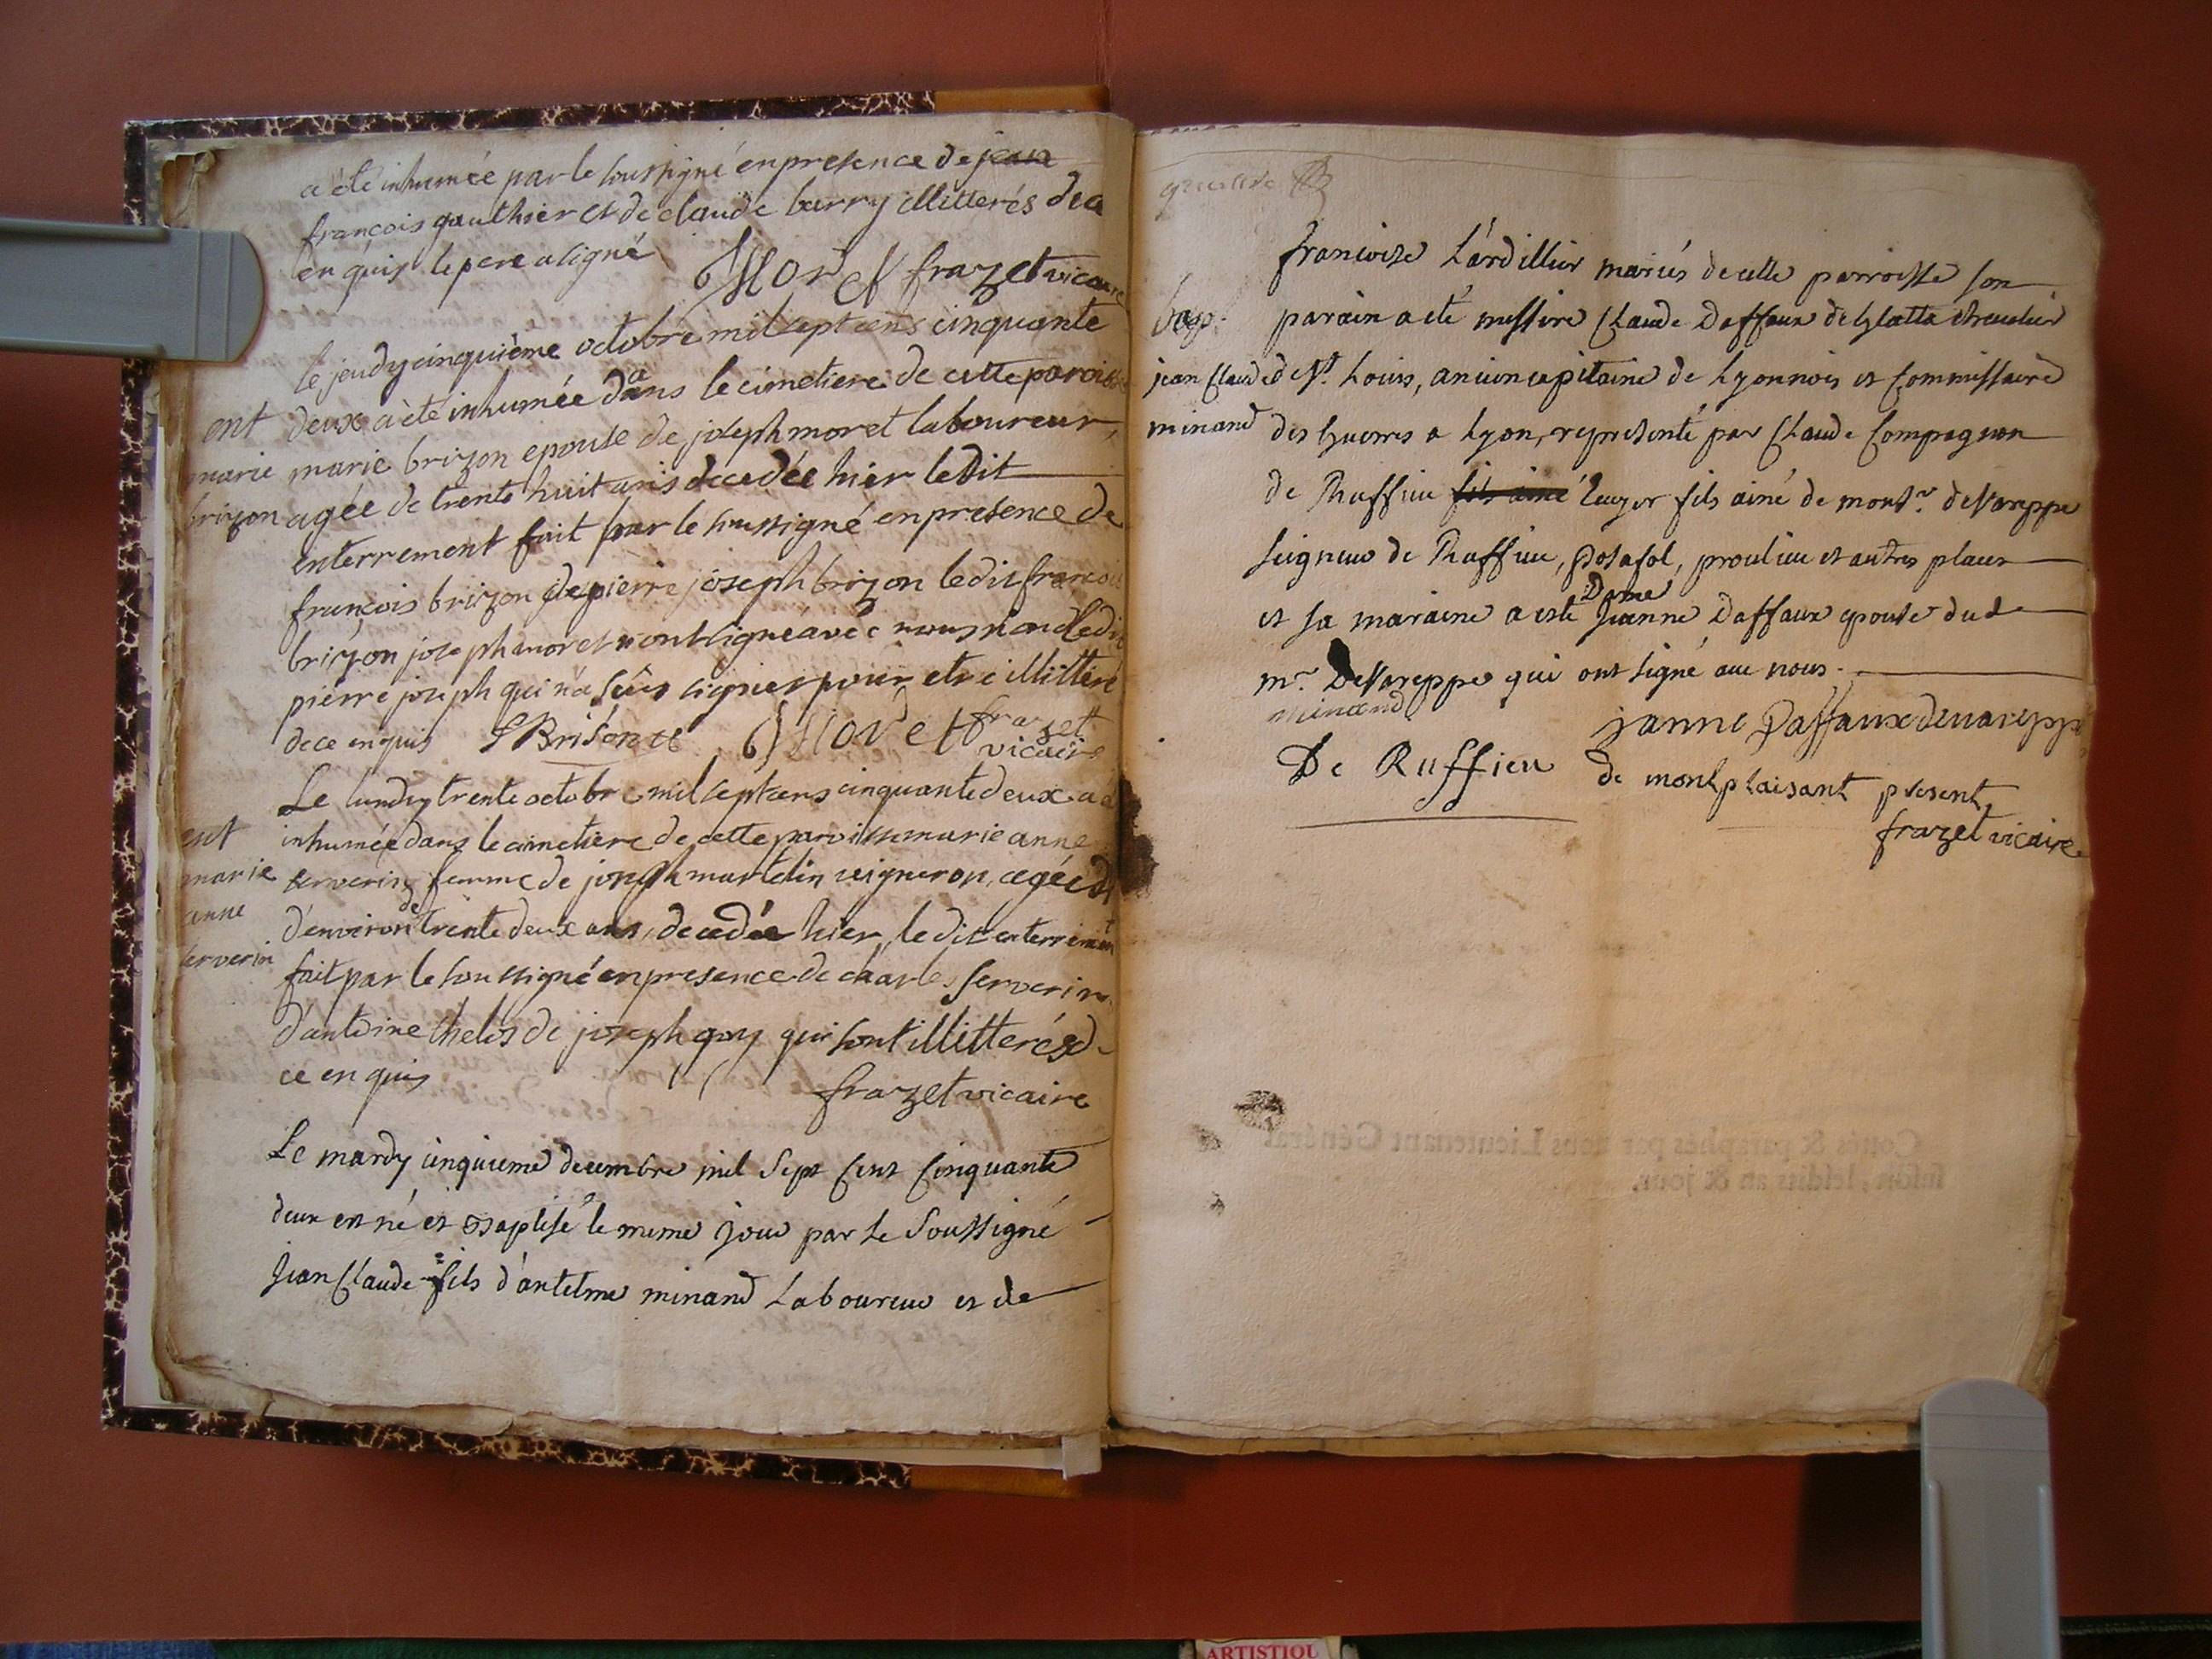 a été inhumée par le soussigné en presence de jean
françois gauthier et de claude barry illitterés de ce
enquis le pere a signé
Moret frazet vicaire
le jeudy cinquième octobre mil sept cens cinquante
deux a été inhumée dans le cimetiere de cette paroisse
ent
marie
brizon
marie brizon epouse de joseph moret laboureur,
agée de trente huit ans decedée hier le dit
enterrement fait par le soussigné en presence de
françois brizon de pierre joseph brizon ledit françois
brizon joseph moret n'ont signé avec nous non ledit
pierre joseph qui n'a sceu signer pour etre illitteré
de ce enquis Brison Moret frazet
vicaire
Le lundy trente octobre mil sept cens cinquante deux a été
ent
marie
anne
serverin
inhumée dans le cimetiere de cette paroisse marie anne
serverin femme de joseph martelin vigneron, agée de
d'environ de trente deux ans, decedée hier, le dit enterrement
fait par le soussigné en presence de charles serverin
d'antoine thelos de joseph goy qui sont illitterés de
ce enquis
frazet vicaire
Le mardy cinquieme decembre mil sept cent cinquante
deux est né et Baptisé le meme jour par le soussigné
Jean Claude fils d'antelme minand Laboureur et de
françoise Lárdillier mariés de cette parroisse son
bap.
jean Claude
minand
parain a été messire Claude Daffaux de Glatta chevalier
de St. Louis, ancien capitaine de Lyonnois et Commissaire
des guerres a Lyon, representé par Claude Compagnon
de Ruffieu fils ainé Ecuyer fils ainé de monsr. deVareppe
seigneur de Ruffieu, Posafol, proulieu et autres places
et sa maraine a esté Dame Jeanne Daffaux epouse dud
mr. DeVareppe qui ont signé avec nous.
minand
janne Daffaux devareppe
De Ruffieu
de montplaisant present,
frazet vicaire
Cottés & paraphés par nous Lieutenant Général
susdit, lesdits an & jour.
ARTISTIQU